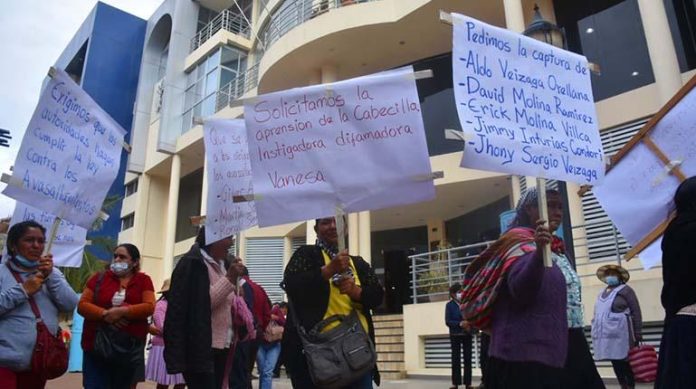 Exigimos que
autoridades hagan
cumplir la ley
contra los
Avasalladores
Solicitamos la
aprension de la Cabecilla
Instigadora difamadora
Vanesa
Pedimos la captura de
-Aldo Veizaga Orellana
-David Molina Ramirez
-Erick Molina Villca
-Jimmy Inturias Contori
-Jhony Sergio Veizaga